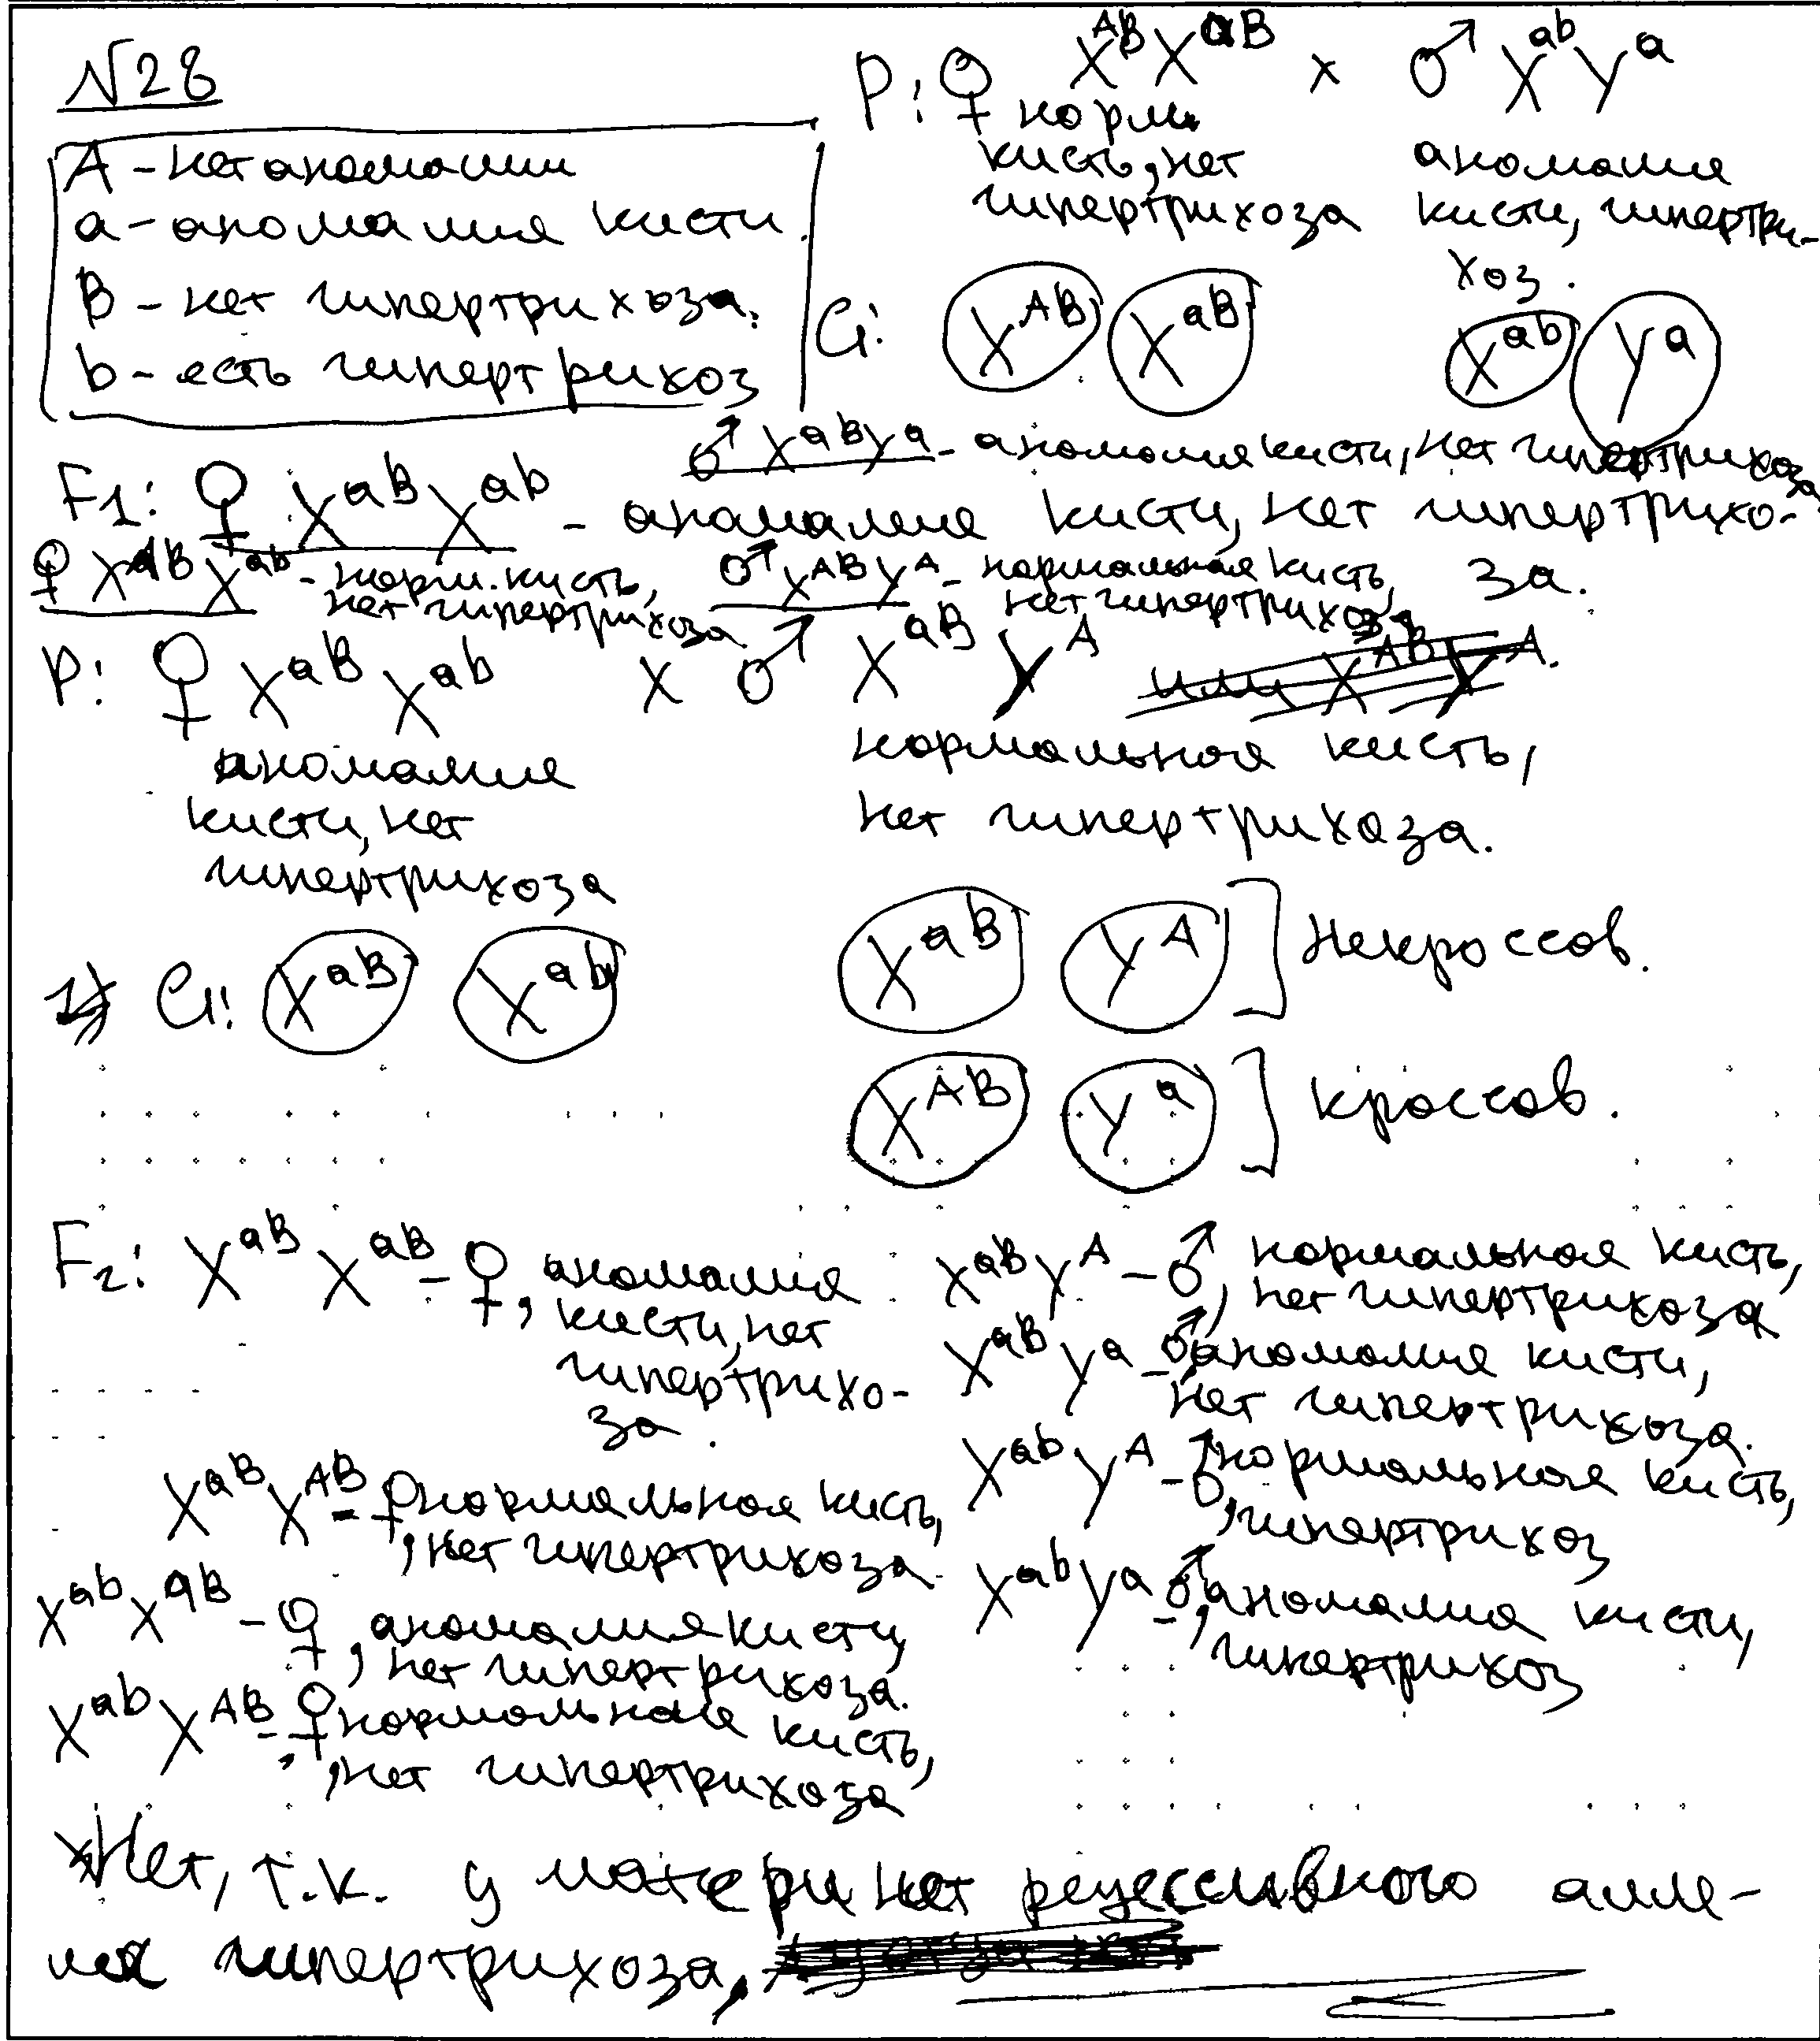 №28
A - нет аномалии
a - аномалия кисти.
B - нет гипертрихоза.
b - есть гипертрихоз
P: ♀ X^AB X^aB x ♂ X^ab Y^a
норм.
кисть, нет
гипертрихоза
аномалия
кисти, гипертри-
хоз.
G: X^AB X^aB X^ab Y^a
♂ X^aB Y^a - аномалия кисти, нет гипертрихоза
F1: ♀ X^aB X^ab - аномалия кисти, нет гипертрихо-
за.
♀ X^AB X^ab - норм. кисть,
нет гипертрихоза
♂ X^AB Y^A - нормальная кисть,
нет гипертрихоза
P: ♀ X^aB X^ab x ♂ X^aB Y^A или X^AB Y^A.
аномалия
кисти, нет
гипертрихоза
нормальная кисть,
нет гипертрихоза.
G: X^aB X^ab X^aB Y^A ] Некроссов.
X^AB Y^a ] кроссов.
F2: X^aB X^aB - ♀, аномалия
кисти, нет
гипертрихо-
за.
X^aB X^AB - ♀ нормальная кисть,
, нет гипертрихоза
X^ab X^aB - ♀, аномалия кисти,
нет гипертрихоза.
X^ab X^AB - ♀ нормальная кисть,
, нет гипертрихоза
X^aB Y^A - ♂, нормальная кисть,
нет гипертрихоза
X^aB Y^a - ♂, аномалия кисти,
нет гипертрихоза.
X^ab Y^A - ♂, нормальная кисть,
гипертрихоз
X^ab Y^a - ♂, аномалия кисти,
гипертрихоз
Нет, т.к. у матери нет рецессивного алле-
ля гипертрихоза,